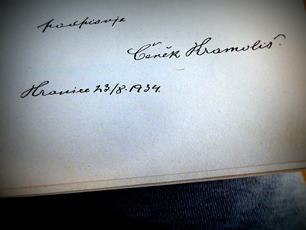 podpisuje
Čeněk Kramoliš.
Hranice 23/8. 1934.